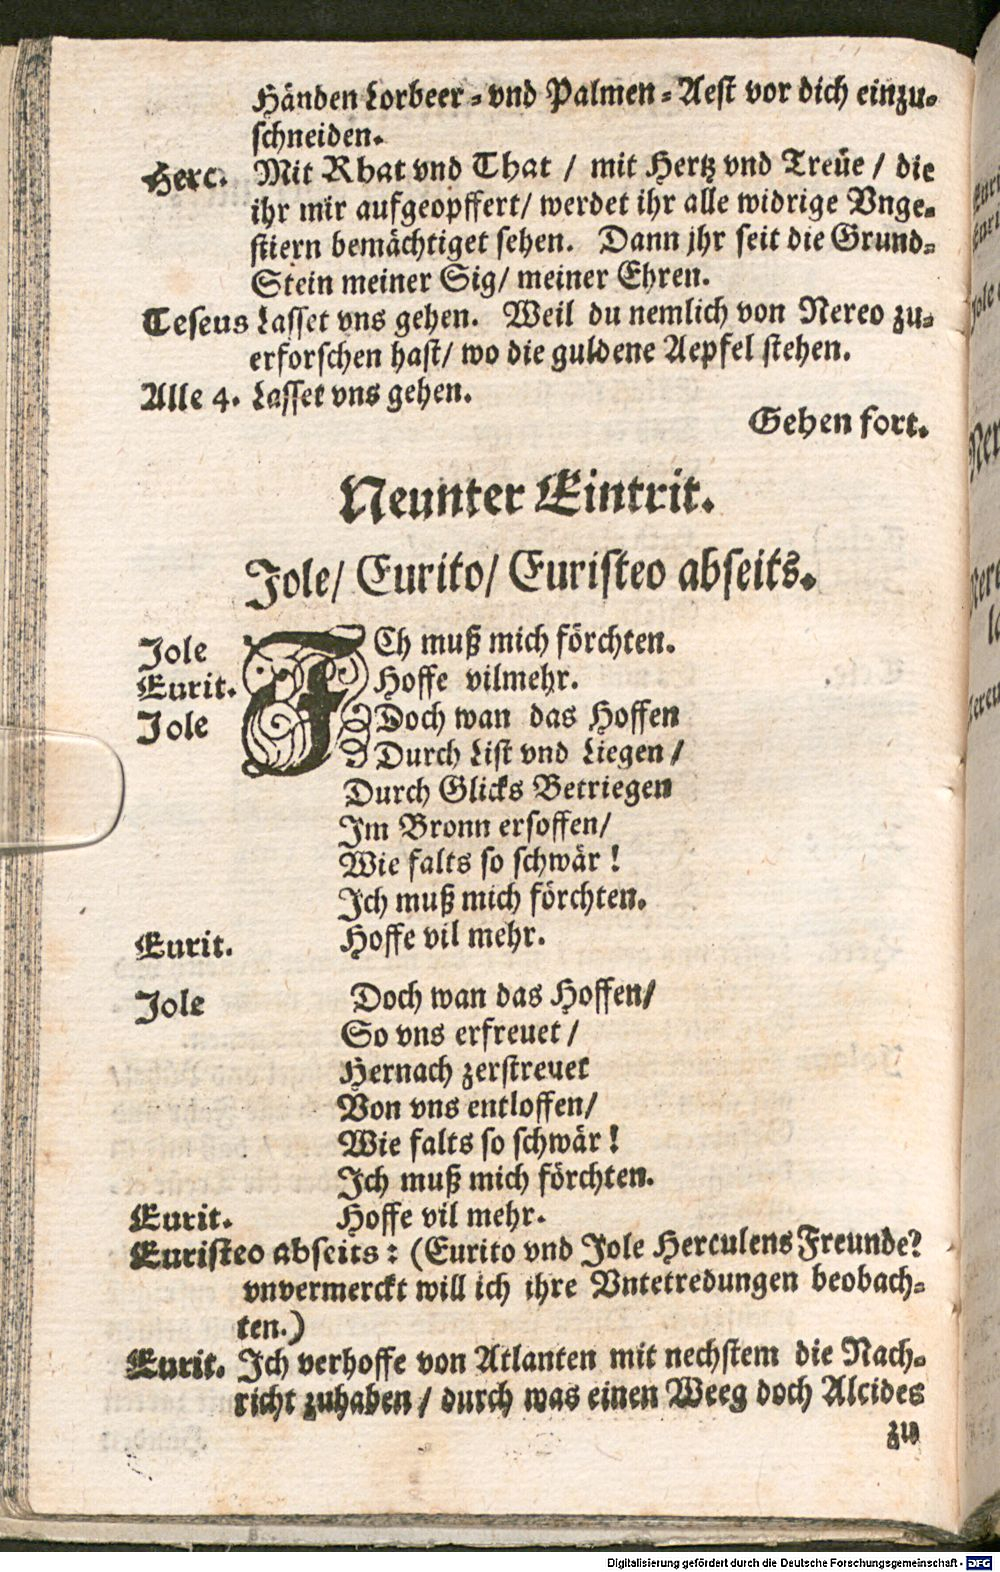 Händen Lorbeer-vnd Palmen-Aest vor dich einzu-
schneiden.
Herc. Mit Rhat vnd That / mit Hertz vnd Treüe / die
ihr mir aufgeopffert/ werdet ihr alle widrige Vnge-
stiern bemächtiget sehen. Dann jhr seit die Grund-
Stein meiner Sig/ meiner Ehren.
Teseus Lasset vns gehen. Weil du nemlich von Nereo zu-
erforschen hast/ wo die guldene Aepfel stehen.
Alle 4. Lasset vns gehen.
Gehen fort.
Neunter Eintrit.
Jole/ Eurito/ Euristeo abseits.
Jole ICh muß mich förchten.
Eurit. Hoffe vilmehr.
Jole Doch wan das Hoffen
Durch List vnd Liegen /
Durch Glicks Betriegen
Im Bronn ersoffen/
Wie falts so schwär !
Ich muß mich förchten.
Eurit. Hoffe vil mehr.
Jole Doch wan das Hoffen/
So vns erfreuet /
Hernach zerstreuet
Von vns entloffen/
Wie falts so schwär !
Ich muß mich förchten.
Eurit. Hoffe vil mehr.
Euristeo abseits: (Eurito vnd Jole Herculens Freunde?
vnvermerckt will ich ihre Vntetredungen beobach-
ten.)
Eurit. Ich verhoffe von Atlanten mit nechstem die Nach-
richt zuhaben / durch was einen Weeg doch Alcides
zu
Digitalisierung gefördert durch die Deutsche Forschungsgemeinschaft - DFG